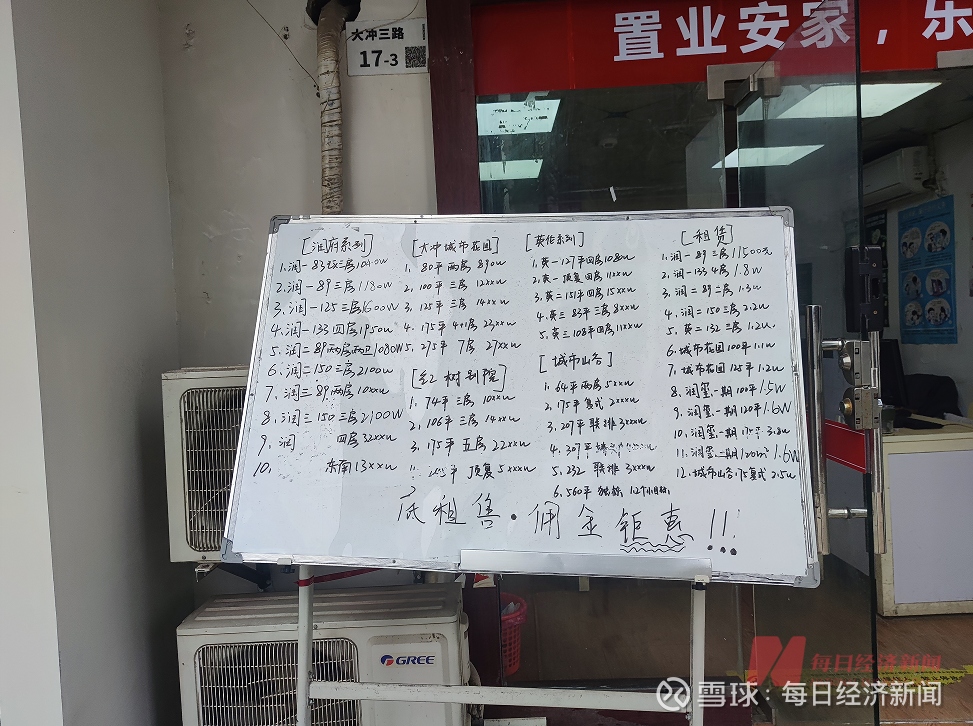 大冲三路
17-3
置业安家，东
[润府系列]
1.润一83平三房1040W
2.润一89三房1180W
3.润一125三房1600W
4.润一133四房1950W
5.润二89两房两卫1080W
6.润二150三房2100W
7.润三89两房10xxW
8.润三150三房2100W
9.润 四房32xxW
10. 东南13xxW
[大冲城市花园]
1. 80平两房890W
2. 100平三房12xxW
3. 125平三房14xxW
4. 175平4+1房23xxW
5. 275平7房27xxW
[红树别院]
1. 74平三房10xxW
2. 106平三房14xxW
3. 175平五房22xxW
平顶复5xxxW
[英伦系列]
1.英一127平四房1080W
2.英一顶复四房11xxW
3.英二151平四房15xxW
4.英三83平三房8xxW
5.英三108平四房11xxW
[城市山谷]
1.64平两房5xxW
2.175平复式2xxxW
3.207平联排3xxxW
4.307平
5.232联排3xxxW
6.560平独栋1.2个小目标
[租赁]
1.润一89三房11500元
2.润一133四房1.8W
3.润二89二房1.3W
4.润二150三房2.2W
5.英三132三房1.2W
6.城市花园100平1.1W
7.城市花园125平1.2W
8.润玺一期100平1.5W
9.润玺一期120平1.6W
10.润玺一期175平3.8W
11.润玺二期120m²1.6W
12.城市山谷175复式2.5W
租售·佣金钜惠!!!
GREE
每日经济新闻
雪球：每日经济新闻